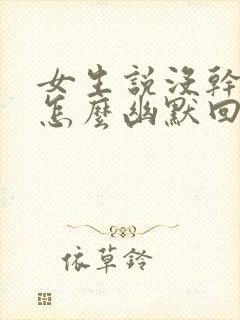 女生説没幹
怎麼幽默回
依草鈴